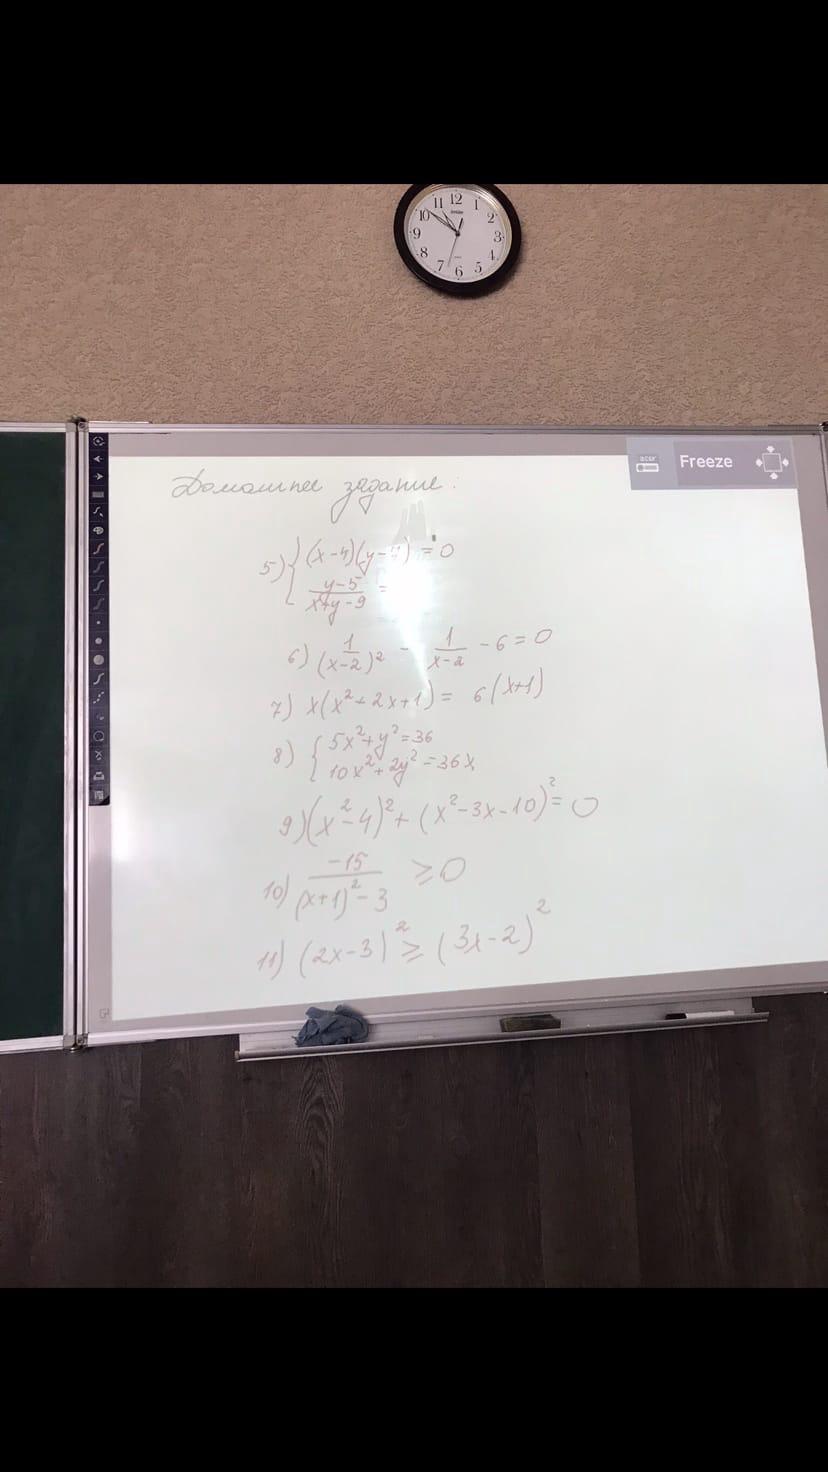 11 12 1
10 2
9 3
8 4
7 6 5
acer Freeze
Домашнее задание:
5) { (x-4)(y-7) = 0
y-5 / x+y-9 =
6) 1/(x-2)² - 1/x-2 - 6 = 0
7) x(x²+2x+1) = 6(x+1)
8) { 5x²+y²=36
10x²+2y²=36x
9) (x²-4)²+(x²-3x-10)²=0
10) -15/(x+1)²-3 ≥ 0
11) (2x-3)² ≥ (3x-2)²